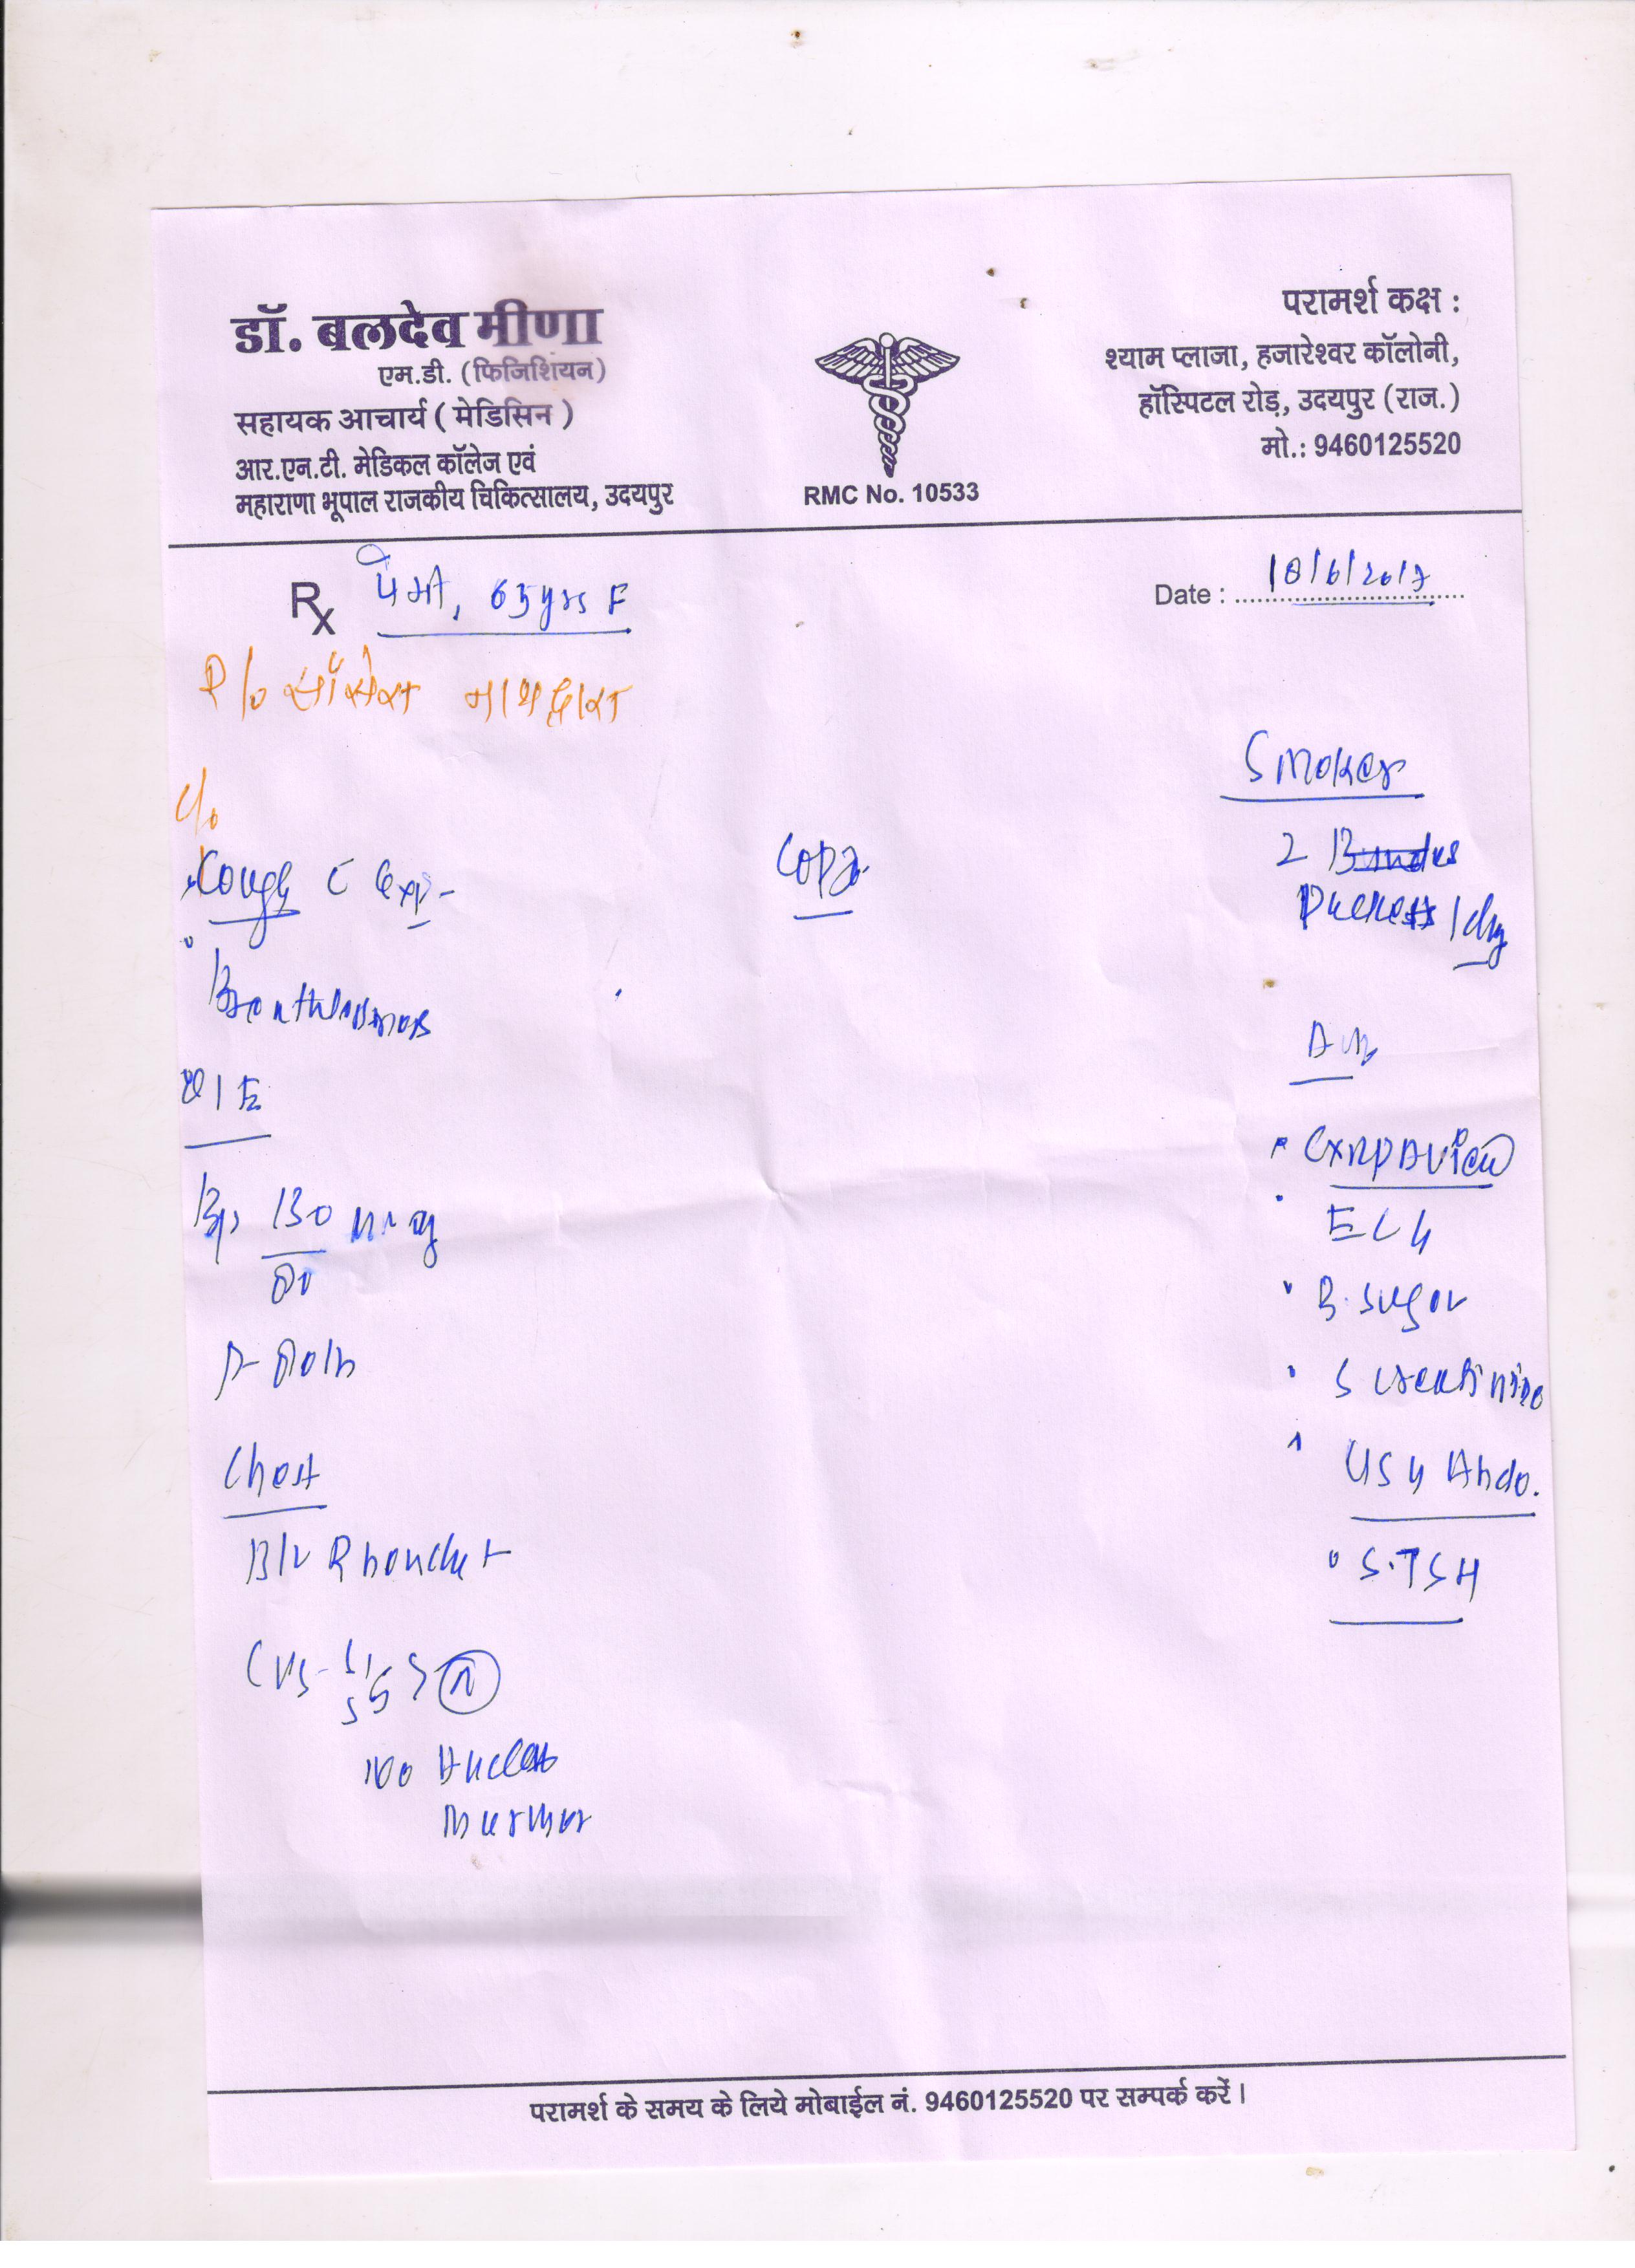 डॉ. बलदेव मीणा
एम.डी. (फिजिशियन)
सहायक आचार्य ( मेडिसिन )
आर.एन.टी. मेडिकल कॉलेज एवं
महाराणा भूपाल राजकीय चिकित्सालय, उदयपुर
RMC No. 10533
परामर्श कक्ष :
श्याम प्लाजा, हजारेश्वर कॉलोनी,
हॉस्पिटल रोड़, उदयपुर (राज.)
मो.: 9460125520
Rx 65 yrs F
Date : 18/6/2017
R/o नाथद्वारा
C/o
Cough c Exp-
Breathlessness
O/E
Bp, 130 mmHg
80
P- 80/m
Chest
B/L Rhonchi +
CVS- S1 S2 N
No
Murmur
COPD
Smoker
2
Packets / day
Adv
CXR PA View
ECG
B. Sugar
S creatinine
USG Abdo.
S.TSH
परामर्श के समय के लिये मोबाईल नं. 9460125520 पर सम्पर्क करें।